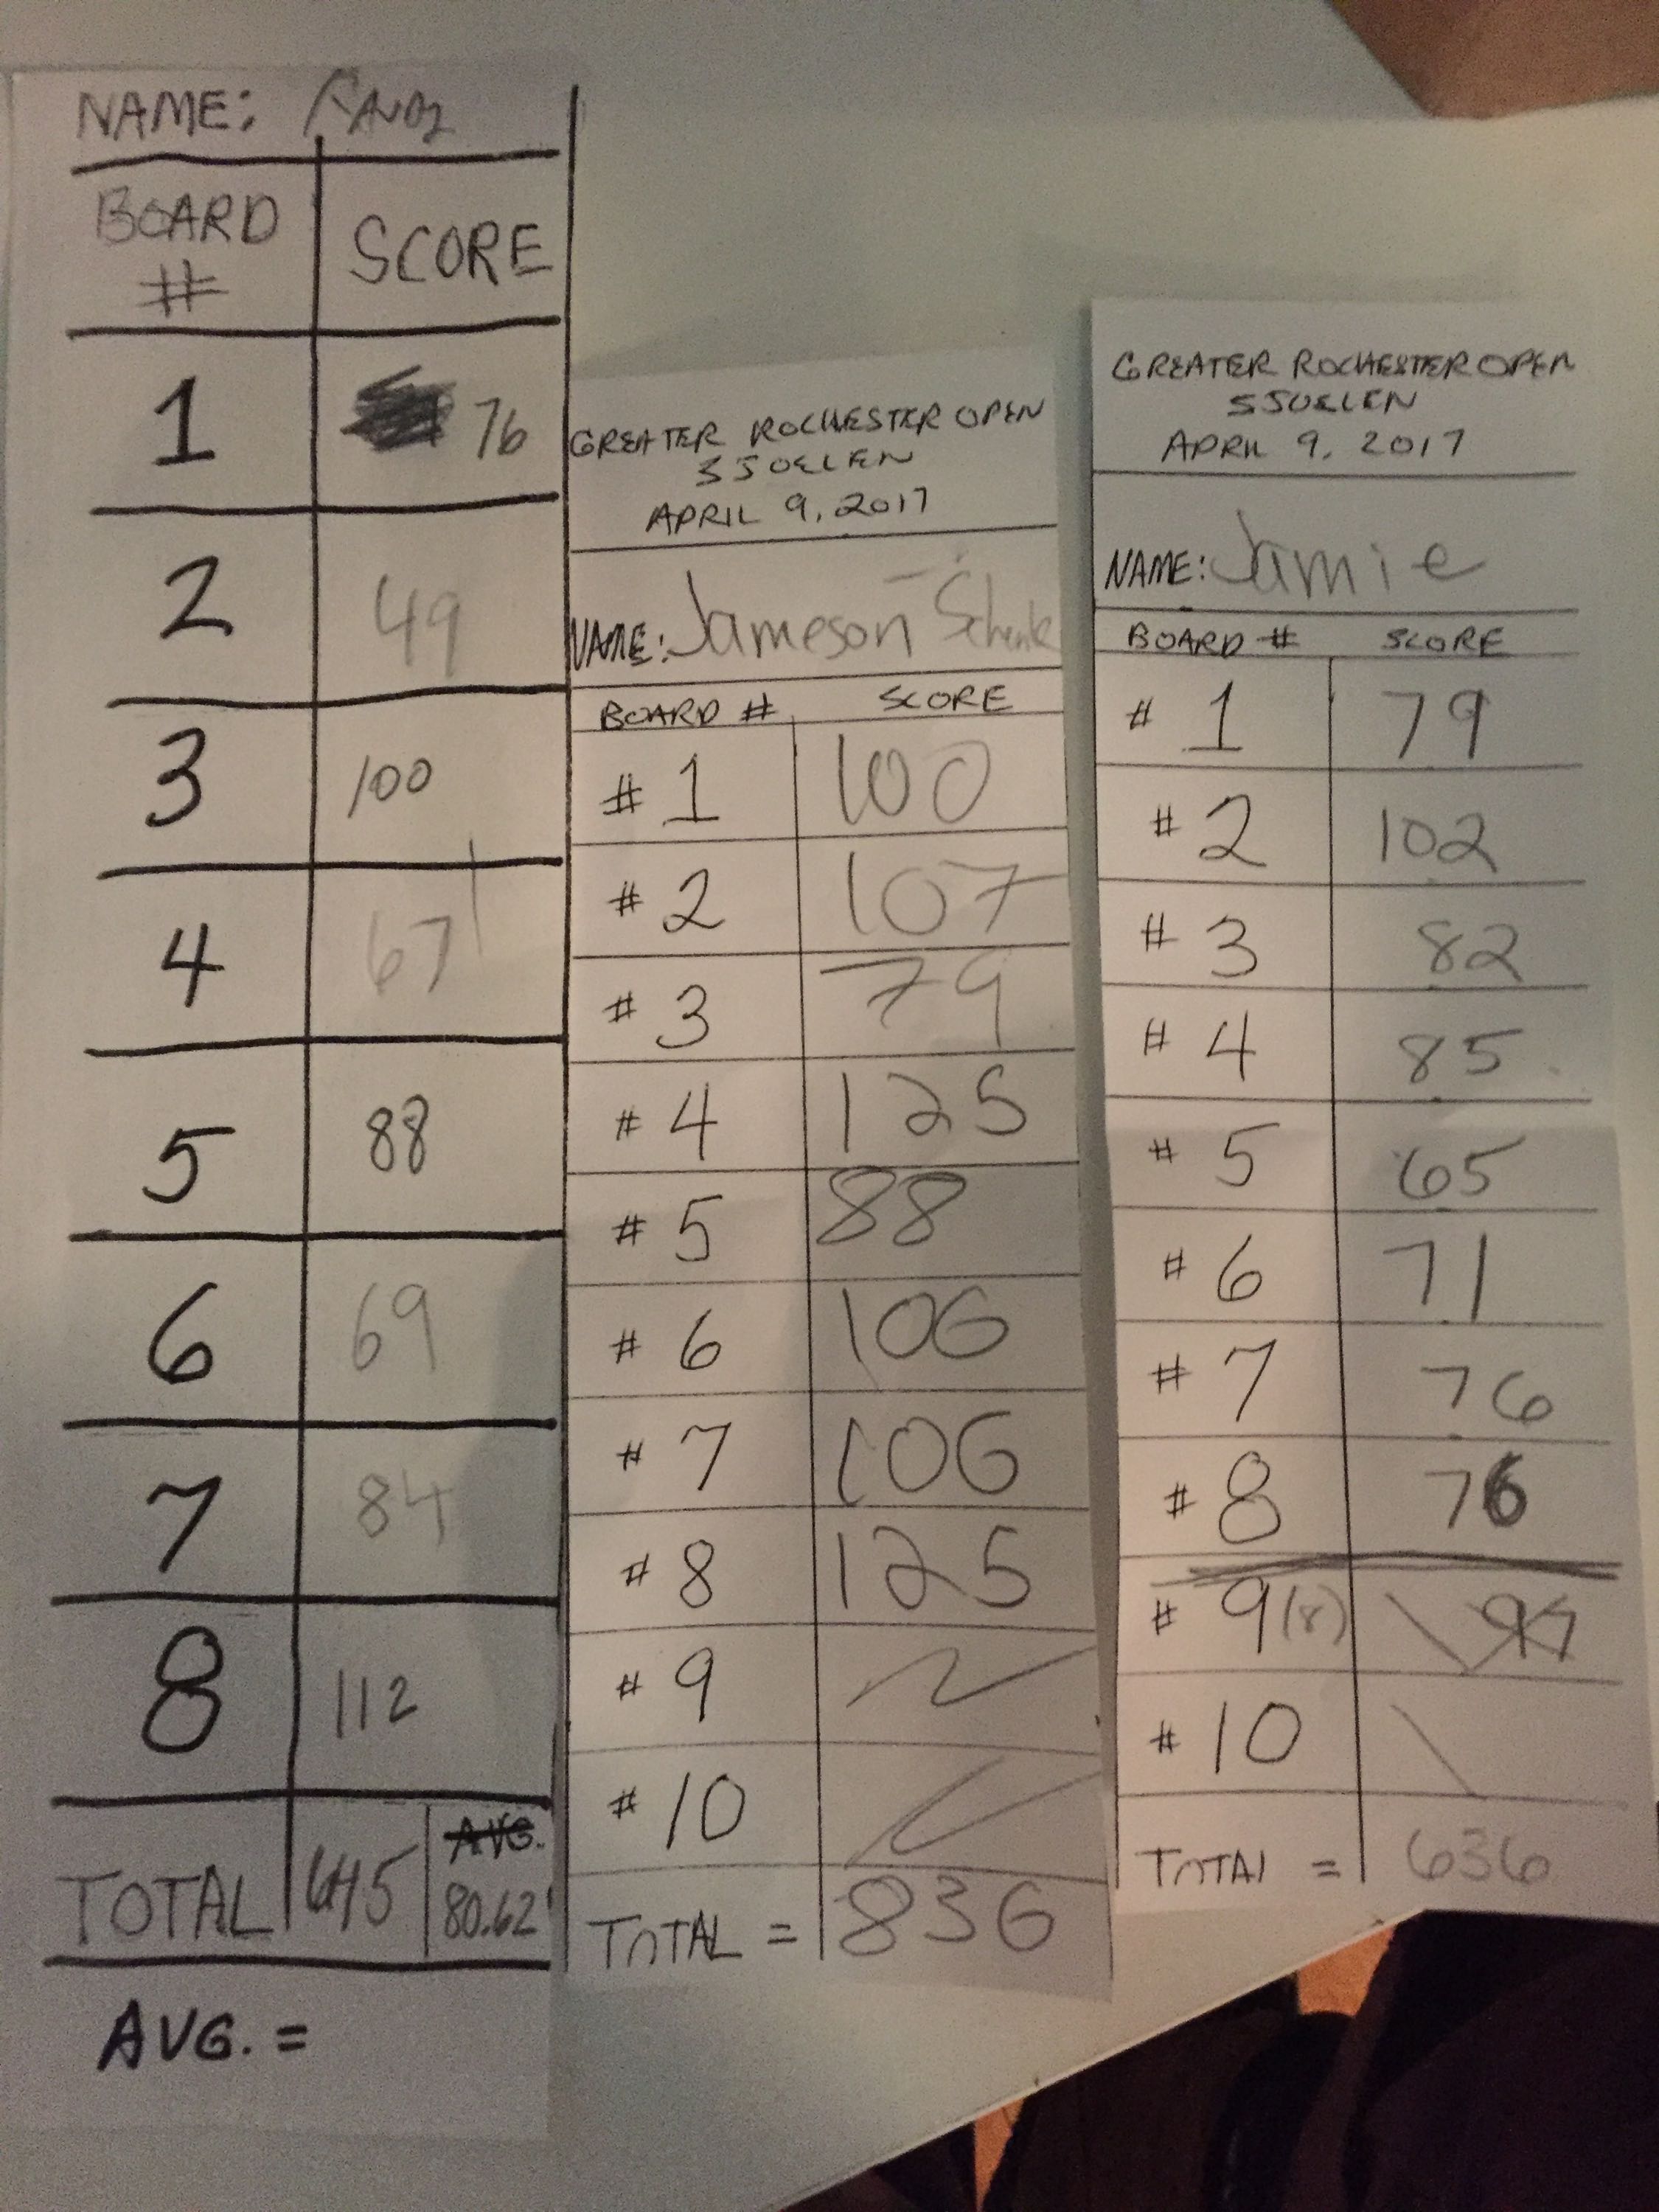 NAME: Randy
BOARD # SCORE
1 76
2 49
3 100
4 67
5 88
6 69
7 84
8 112
TOTAL 645 AVG. 80.62
AVG. =
GREATER ROCHESTER OPEN
SJOELEN
APRIL 9, 2017
NAME: Jameson
BOARD # SCORE
# 1 100
# 2 107
# 3 79
# 4 125
# 5 88
# 6 106
# 7 106
# 8 125
# 9
# 10
TOTAL = 836
GREATER ROCHESTER OPEN
SJOELEN
APRIL 9, 2017
NAME: Jamie
BOARD # SCORE
# 1 79
# 2 102
# 3 82
# 4 85
# 5 65
# 6 71
# 7 76
# 8 76
# 9 (8)
# 10
TOTAL = 636